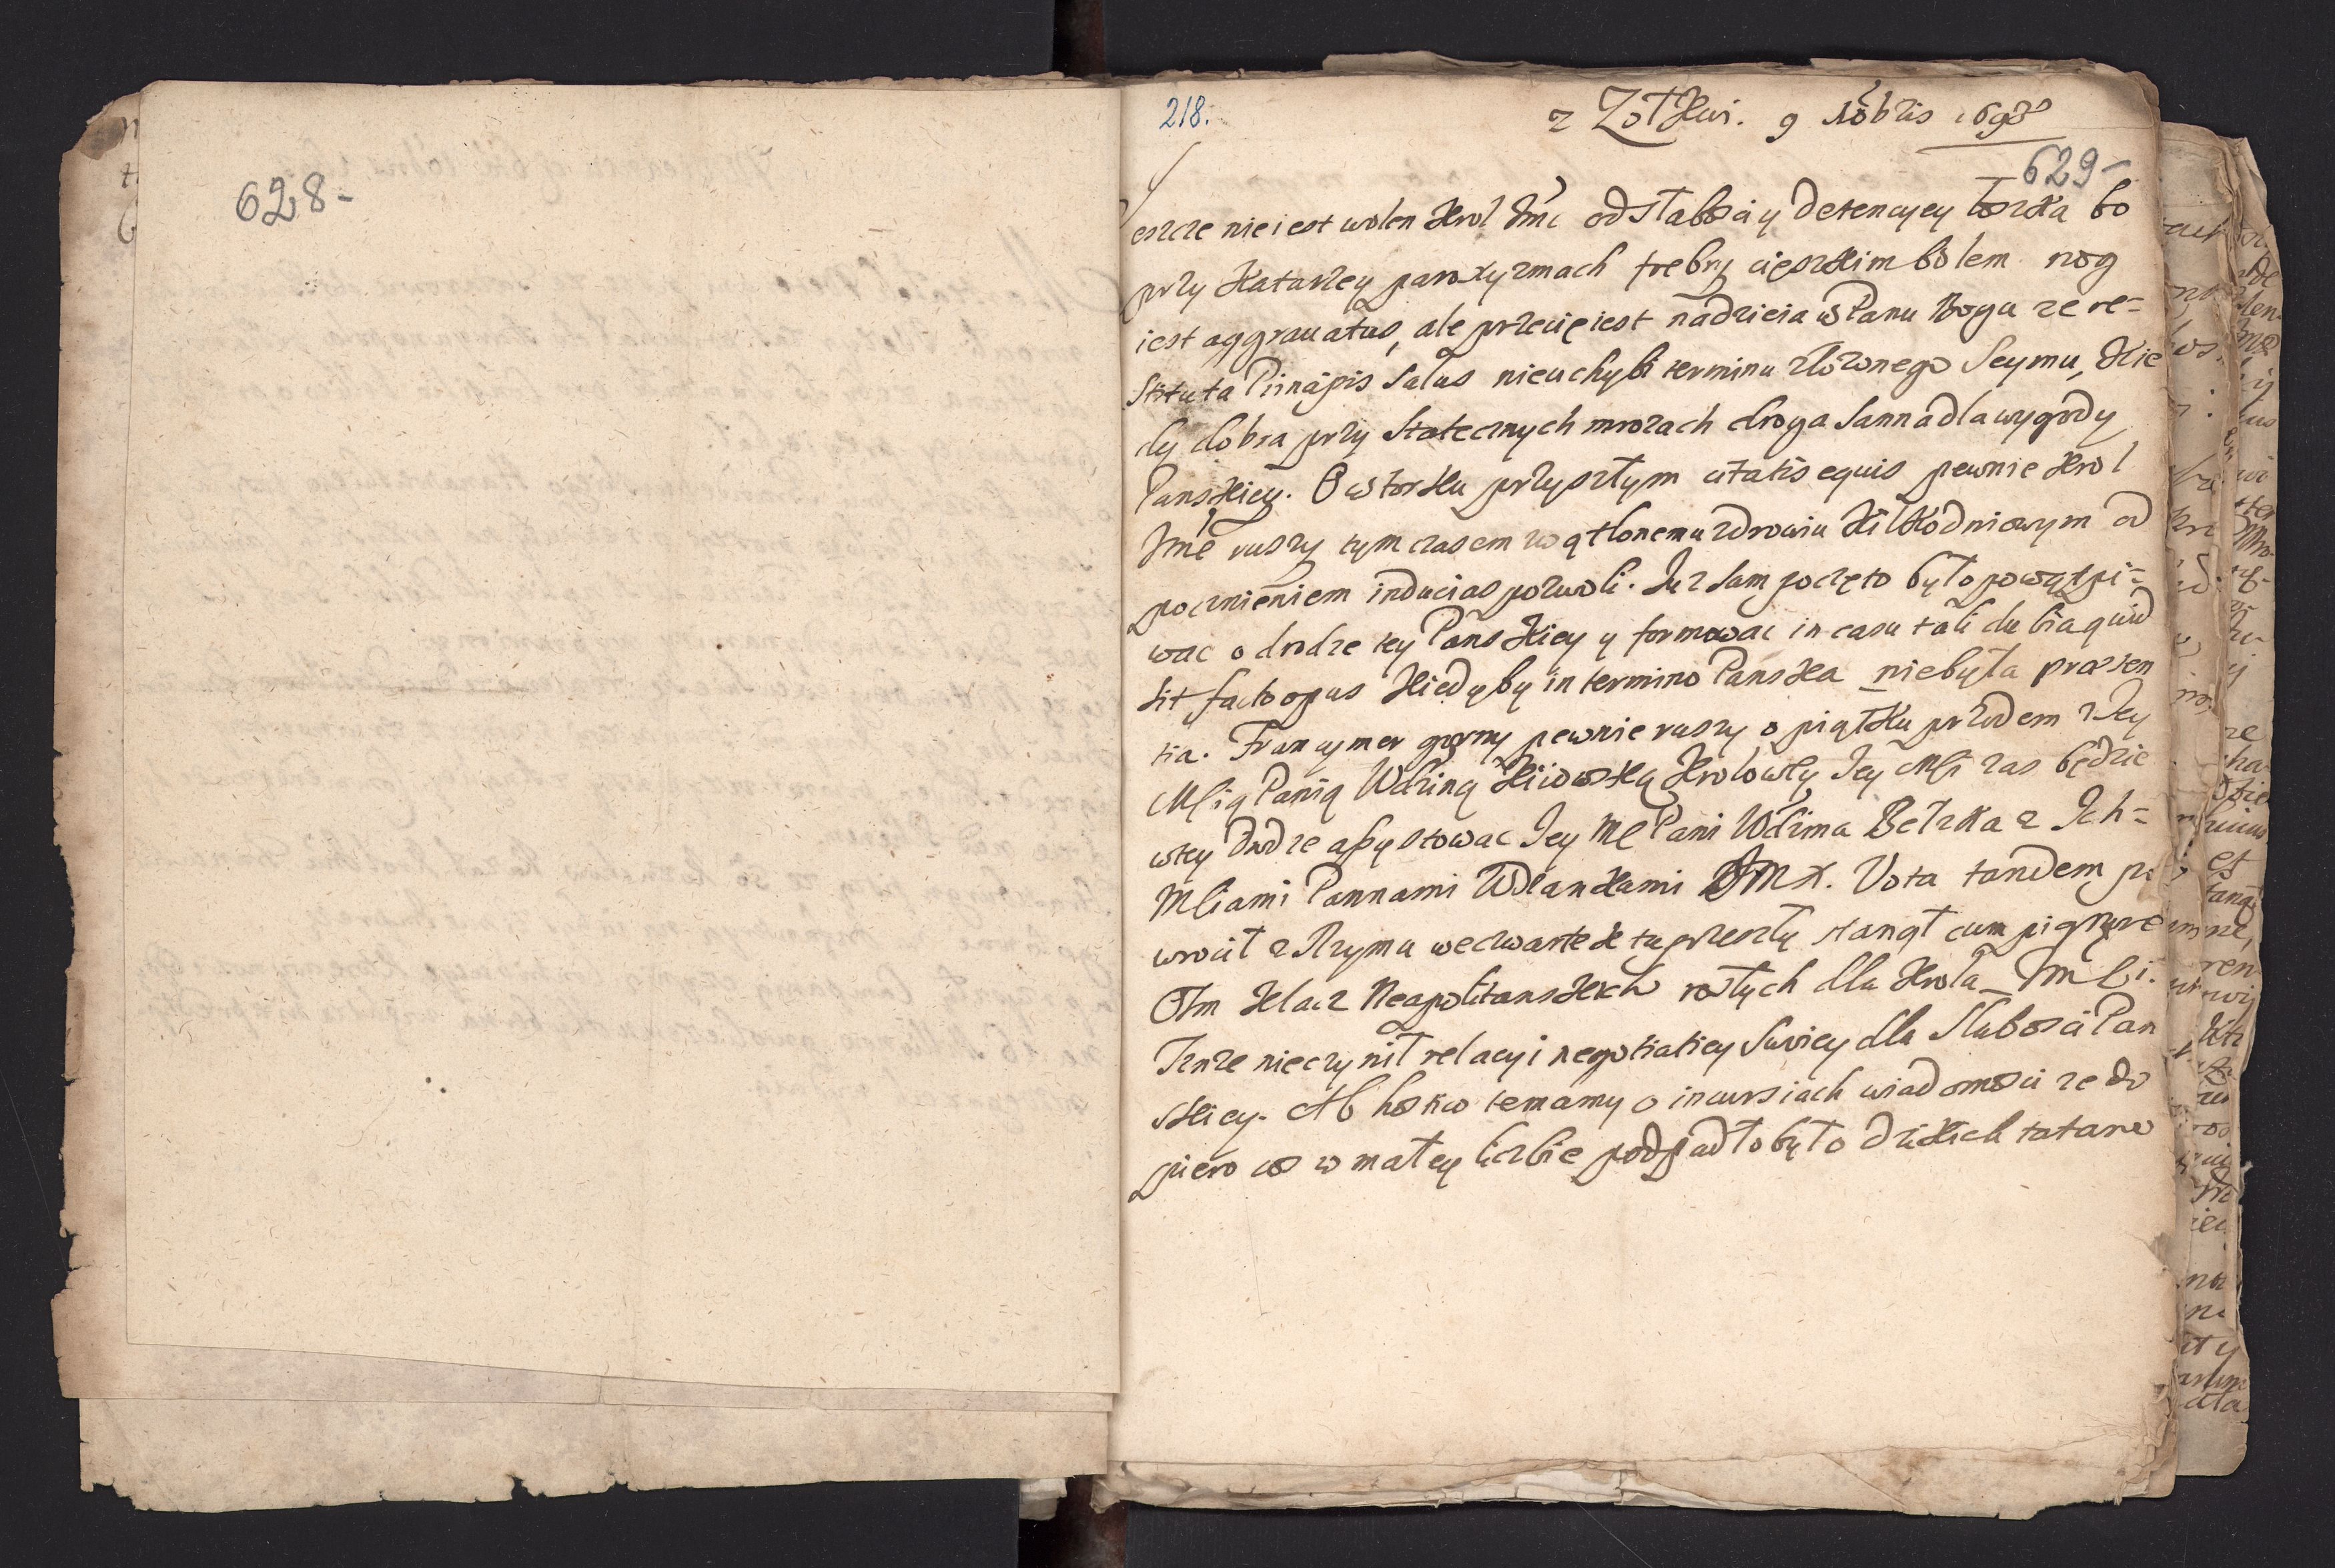 628-
218.
z Zołkwi. 9 Xbris 1693
629-
Jeszcze nie iest wolen Krol Jmć od słabosci y detencyey łozka bo
przy Katarzey paroxyzmach febry cięszkim bolem nog
iest aggrauatus, ale przecię iest nadzieia w Panu Bogu ze re=
stituta Principis Salus nieuchybi terminu złozonego Seymu, Kie
dy dobra przy statecznych mrozach droga Sanna dla wygody
Panskiey. O wtorku przyszłym citatis equis pewnie Krol
Jmć ruszy tym czasem wątlonemu zdrowiu kilkodniowym od
pocznieniem inducias pozwoli. Juz sam poczęto było powątpi=
wac o drodze tey Panskiey y formowac in casu tali dubia quid
sit facto opus kiedy by in termino Panska niebyła præsen
tia. Francymer gorny pewnie ruszy o piątku przodem z Jey
Mścią Panią Wdziną Kiiowską Krolowey Jey Msci zas będzie
wtey drodze assystowac Jey Mć Pani Wdzina Bełzka z Ich=
Msciami Pannami Wdzankami JMX. Vota tandem po
wrocił z Rzymu weczwartek tu przeszły stanął cum pignore
Ośm Klacz Neapolitanskich rosłych dla Krola Jm sci.
Jeszcze nieczynił relacyi negotiatiey Swoiey dla Słabosci Pan
skiey. Ab hoste temamy o incursiach wiadomosci ze do
piero co w małey liczbie podpadło było dzikich tatarow